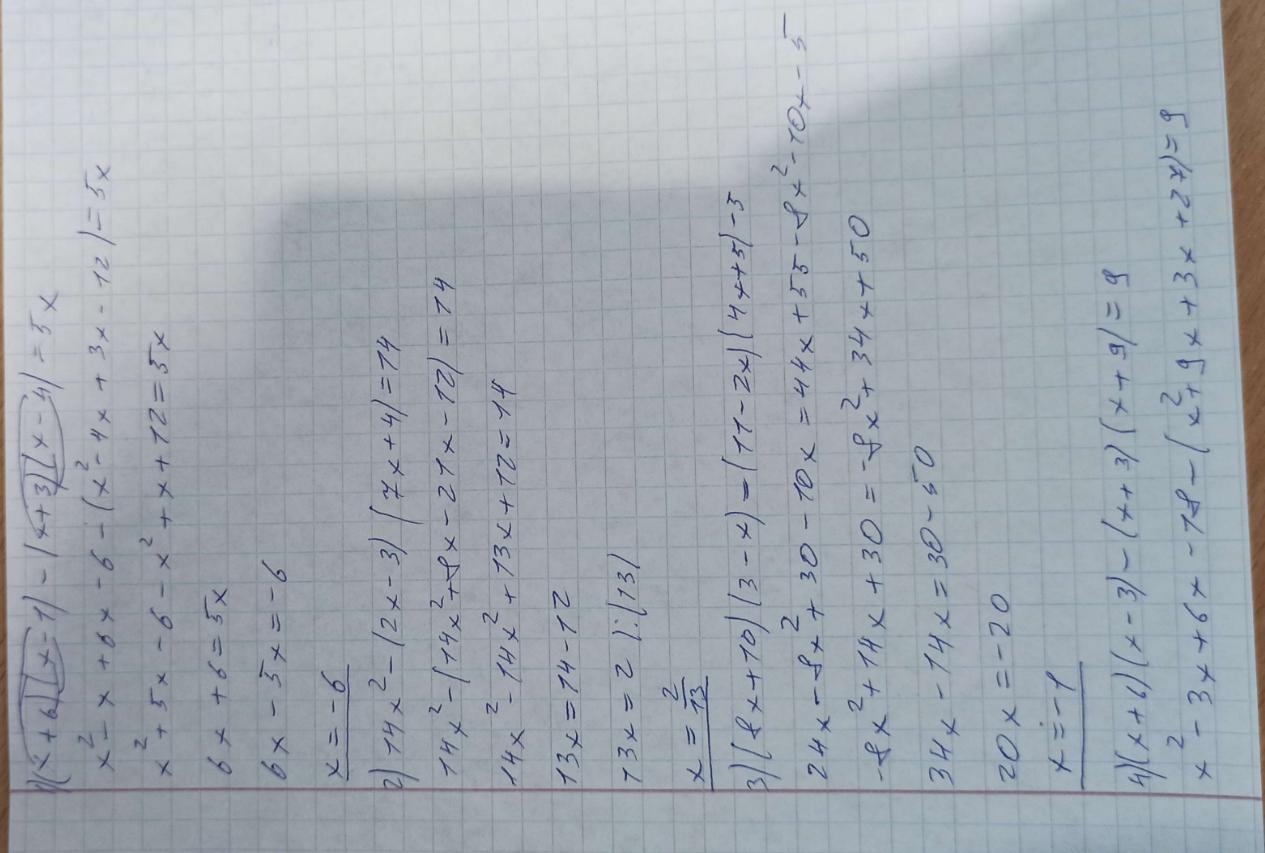 1)(x+6)(x-1)-(x+3)(x-4)=5x
x²-x+6x-6-(x²-4x+3x-12)=5x
x²+5x-6-x²+x+12=5x
6x+6=5x
6x-5x=-6
x=-6
2)14x²-(2x-3)(7x+4)=14
14x²-(14x²+8x-21x-12)=14
14x²-14x²+13x+12=14
13x=14-12
13x=2 |:(13)
x=2/13
3)(8x+10)(3-x)=(11-2x)(4x+5)-5
24x-8x²+30-10x=44x+55-8x²-10x-5
-8x²+14x+30=-8x²+34x+50
34x-14x=30-50
20x=-20
x=-1
4)(x+6)(x-3)-(x+3)(x+9)=9
x²-3x+6x-18-(x²+9x+3x+27)=9